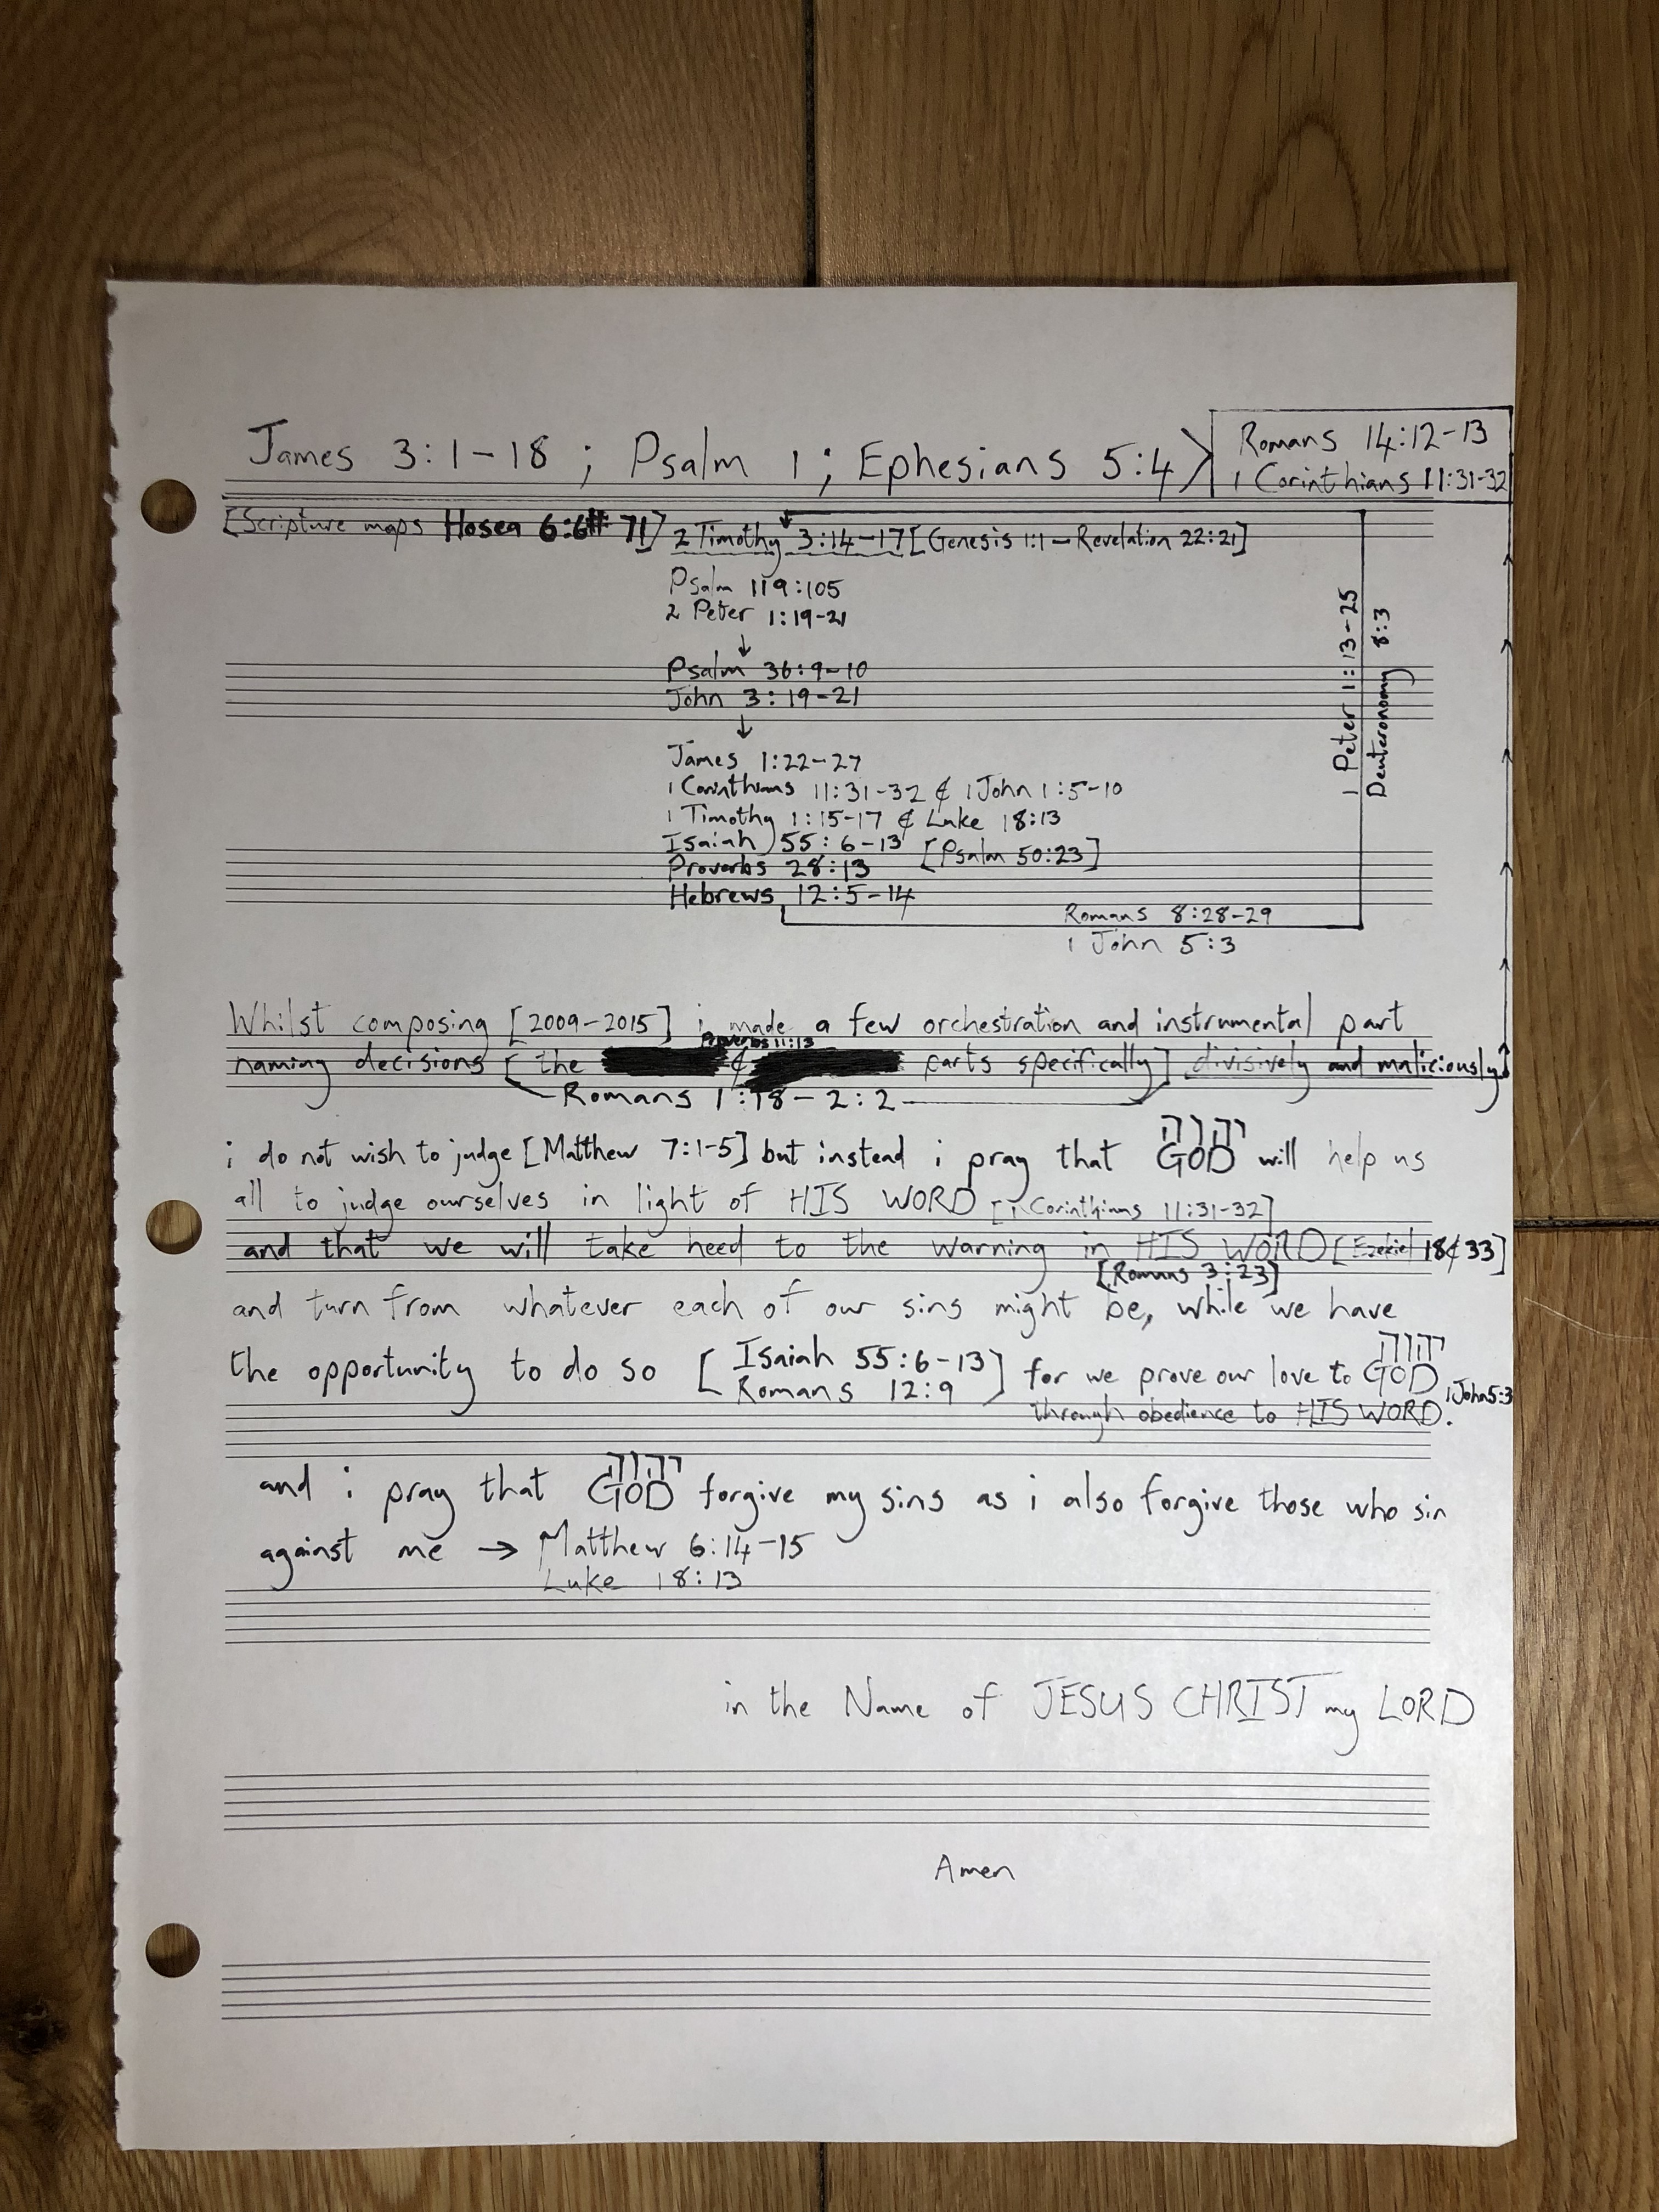 James 3:1-18 ; Psalm 1 ; Ephesians 5:4
Romans 14:12-13
1 Corinthians 11:31-32
[Scripture maps Hosea 6:6# 71]
2 Timothy 3:14-17 [Genesis 1:1 - Revelation 22:21]
Psalm 119:105
2 Peter 1:19-21
↓
Psalm 36:9-10
John 3:19-21
↓
James 1:22-27
1 Corinthians 11:31-32 & 1 John 1:5-10
1 Timothy 1:15-17 & Luke 18:13
Isaiah 55:6-13 [Psalm 50:23]
Proverbs 28:13
Hebrews 12:5-14
Romans 8:28-29
1 John 5:3
1 Peter 1:13-25
Deuteronomy 8:3
Whilst composing [2009-2015] i made a few orchestration and instrumental part
Proverbs 11:13
naming decisions [the & parts specifically] divisively and maliciously
Romans 1:18-2:2
יהוה
i do not wish to judge [Matthew 7:1-5] but instead i pray that GOD will help us
all to judge ourselves in light of HIS WORD [1 Corinthians 11:31-32]
and that we will take heed to the warning in HIS WORD [Ezekiel 18 & 33]
[Romans 3:23]
and turn from whatever each of our sins might be, while we have
יהוה
the opportunity to do so [Isaiah 55:6-13 Romans 12:9] for we prove our love to GOD
1 John 5:3
through obedience to HIS WORD.
יהוה
and i pray that GOD forgive my sins as i also forgive those who sin
against me → Matthew 6:14-15
Luke 18:13
in the Name of JESUS CHRIST my LORD
Amen